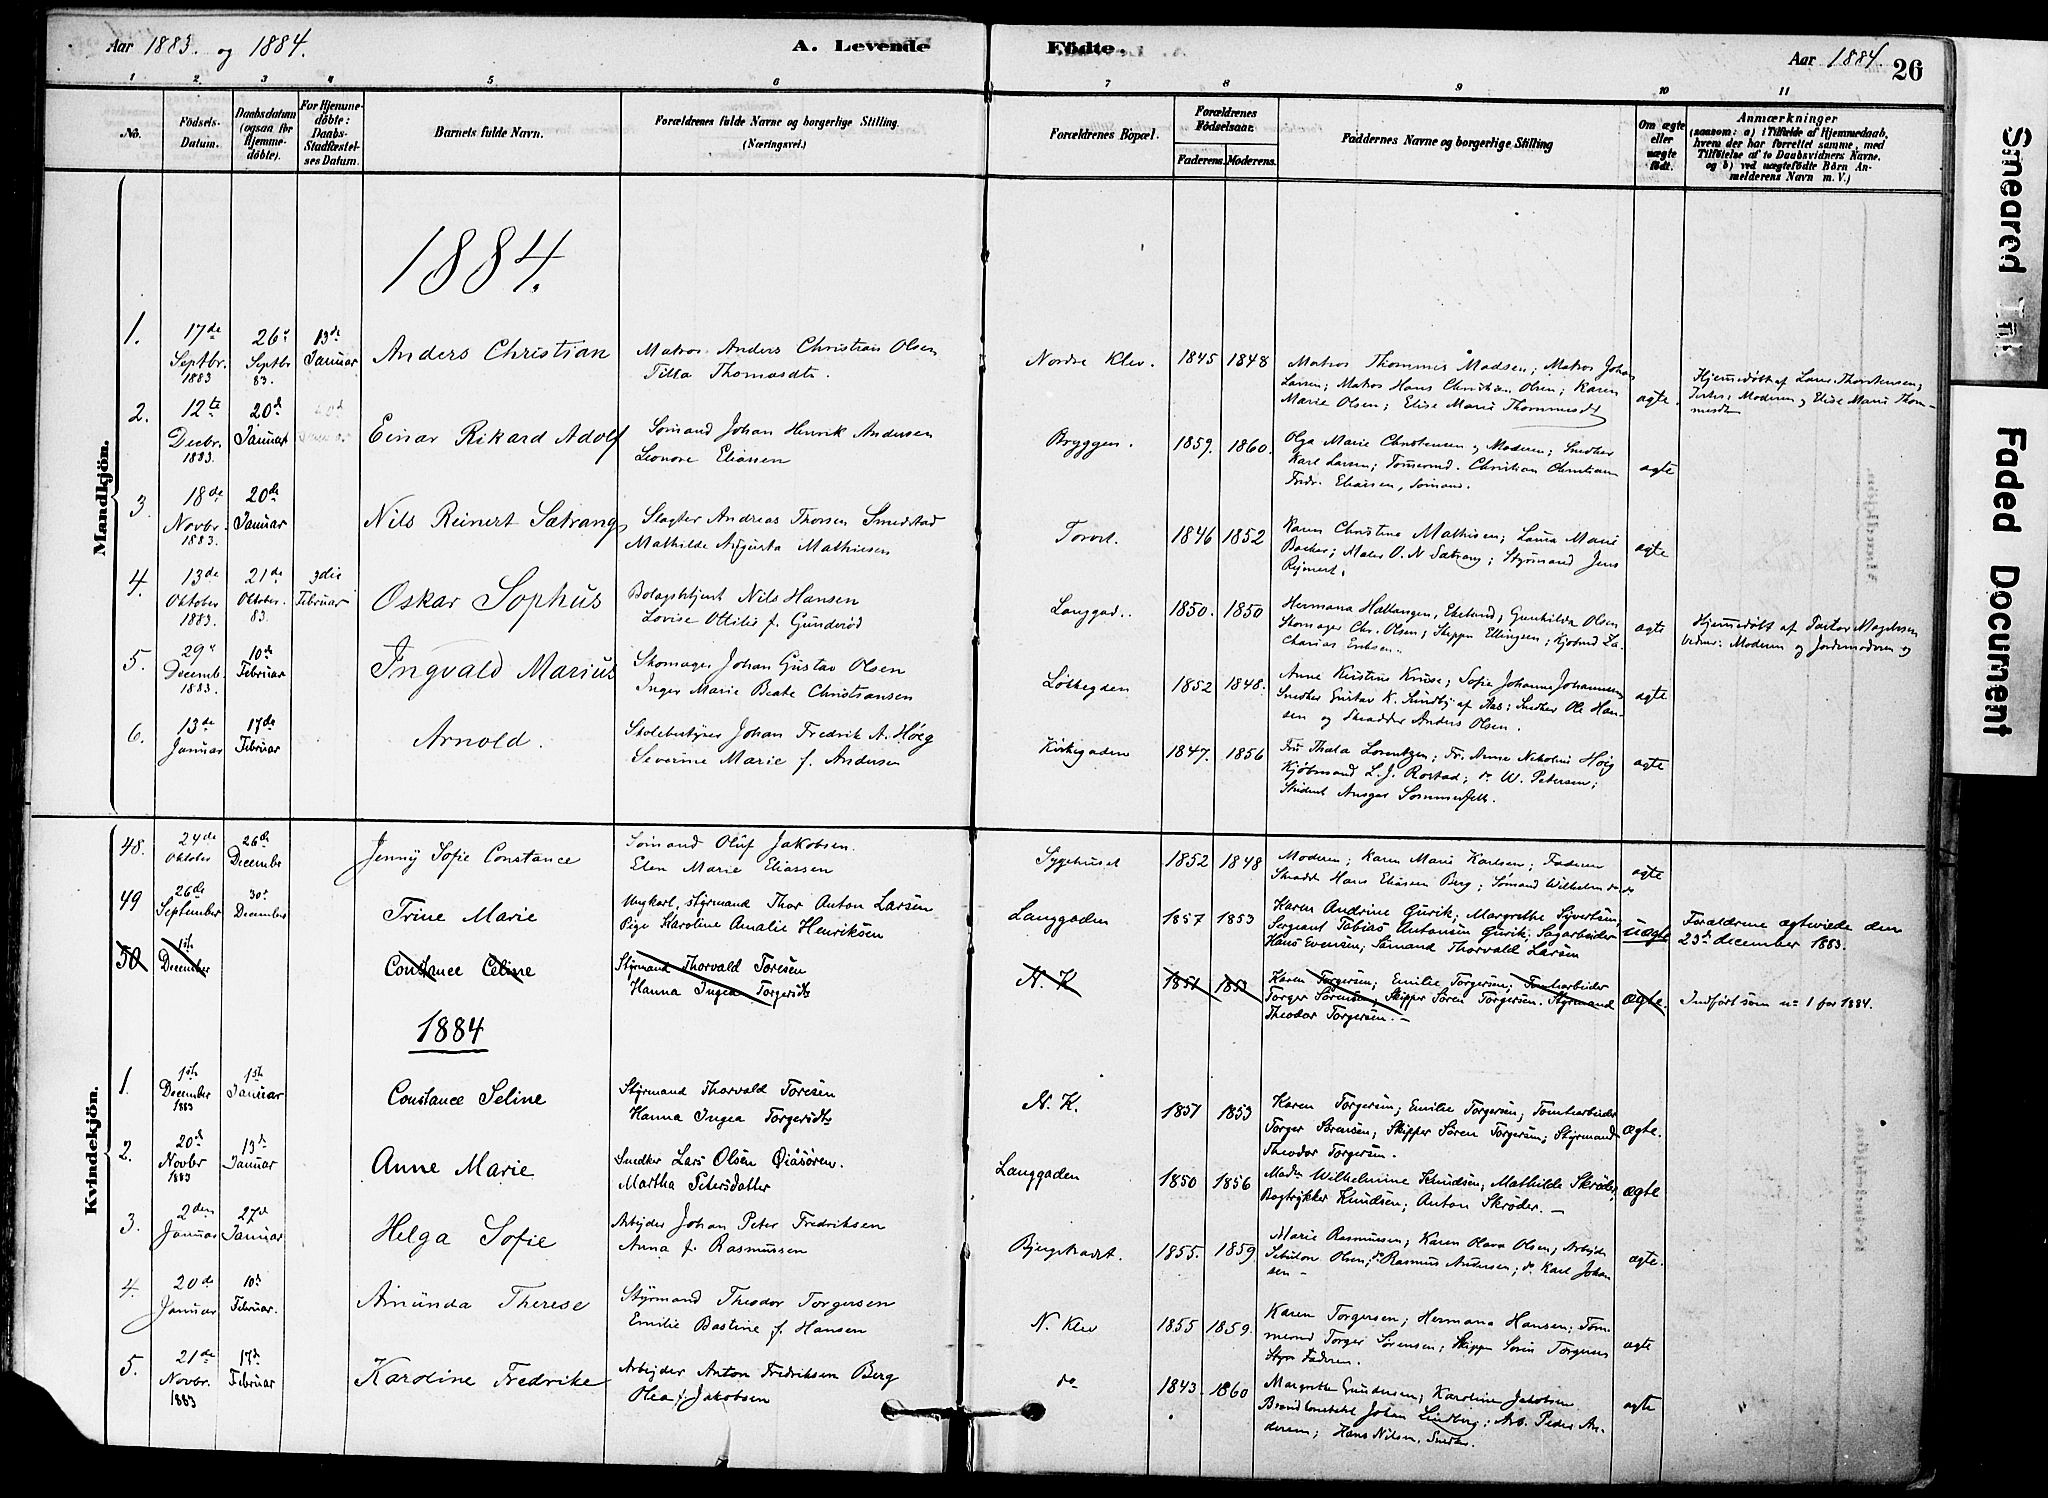 Aar 1883. og 1884.
A. Levende
Födte.
Aar 1884.
26
1 2. 3 4 5 6 7 8 9 10 11
No.
Födsels-Datum.
Daabsdatum (ogsaa for Hjemmedöbte).
For Hjemmedöbte: Daabs-Stadfæstelses Datum.
Barnets fulde Navn.
Forældrenes fulde Navne og borgerlige Stilling. (Næringsvei.)
Forældrenes Bopæl.
Forældrenes Födselsaar.
Faderens. Moderens.
Faddernes Navne og borgerlige Stilling
Om ægte eller uægte födt.
Anmærkninger
(saasom: a) i Tilfælde af Hjemmedaab,
hvem der har forrettet samme, med
Tilföielse af to Daabsvidners Navne.
og b) ved uægtefödte Börn An-
melderens Navn m. V.)
Mandkjön.
1884.
1. 17de Septbr. 1883 26 Septbr 83. 13de Januar Anders Christian
Matros Anders Christian Olsen
Tilla Thomasdt.
Nordre Klev. 1845 1848
Matros Thommes Madsen; Matros Johan
Larsen; Matros Hans Christian Olsen; Karen
Marie Olsen; Elise Marie Thommesdt
ægte.
Hjemmedøbt af Lars Thorstensen;
Testes: Moderen og Elise Marie Thom-
mesdt
2. 12te Decbr. 1883. 20d Januar Einar Rikard Adolf
Sømand Johan Henrik Andersen
Leonore Eliassen
Bryggen. 1859. 1860.
Olga Marie Christensen og Moderen; Snedker
Karl Larsen; Tømmermd. Christian Christiansen
Fredr. Eliassen, Sømand.
ægte
3. 18de Novbr. 1883. 20de Januar Nils Reinert Sætrang
Slagter Andreas Thorsen Smedstad
Mathilde Augusta Mathiesen
Torvet. 1846 1852
Karen Christine Mathisen; Laura Marie
Backer; Maler O. N. Sætrang; Styrmand Jens
Rejnert.
ægte
4. 13de Oktober 1883. 21de Oktober. 83. 3die Februar Oskar Sophus
Bolagstjent Nils Hansen
Lovise Ottilie f. Gunderød
Langgad. 1850. 1850
Hermana Hallangen, Ekelund; Gunhilda Olsen
Skomager Chr. Olsen; Skipper Ellingsen; Kjøbmd Za-
charias Eriksen.
ægte
Hjemmedøbt af Pastor Magelssen
Vidner: Moderen og Jordemoderen
5. 29 Decemb. 1883. 10de Februar Ingvald Marius
Skomager Johan Gustav Olsen
Inger Marie Beate Christiansen
Løkkegden 1852 1848.
Anne Kirstine Knuse; Sofie Johanne Johannesen
Snedker Gustav K. Sundby af Aas; Snedker Ole Han-
sen og Skrædder Anders Olsen.
ægte
6. 13de Januar 17de Februar Arnold.
Skolebestyrer Johan Fredrik A. Høeg
Severine Marie f. Andersen
Kirkegaden 1847. 1856
Fru Thala Lorentzen; Fr. Anne Nikoline Høeg
Kjøbmand L. J. Rostad; do W. Petersen;
Student Ansgar Sommerfelt.
ægte
Kvindekjön.
48. 24de Oktober 26de December Jenny Sofie Constance
Sømand Oluf Jakobsen.
Elen Marie Eliassen
Sygehuset 1852 1848
Moderen; Karen Marie Karlsen; Faderen
Skrædd. Hans Eliasen Berg; Sømand Wilhelm do
ægte
49 26de September 30d December Trine Marie
Ungkarl, Styrmand Thor Anton Larsen
Pige Karoline Amalie Henriksen
Langgaden 1857 1853
Karen Andrine Gurik; Margrethe Syvertsen
Sergeant Tobias Antonsen Gurik; Sagarbeider
Hans Evensen; Sømand Thorvald Larsen
uægte
Forældrene ægteviede den
23de december 1883.
50 1ste December Constance Celine
Styrmand Thorvald Toresen
Hanna Ingea Torgersdt.
N. K. 1851 1853
Karen Torgersen; Emilie Torgersen; Tomtearbeider
Torger Sørensen; Skipper Søren Torgersen. Styrmand
Theodor Torgersen. —
ægte.
Indført som no 1 for 1884.
1884
1. 1ste December 1883 1ste Januar Constance Seline
Styrmand Thorvald Toresen
Hanna Ingea Torgersdt.
N. K. 1851 1853
Karen Torgersen; Emilie Torgersen; Tomtearbeider
Torger Sørensen; Skipper Søren Torgersen; Styrmand
Theodor Torgersen.
ægte.
2. 20de Novbr 1883 13de Januar Anne Marie
Snedker Lars Olsen Qiåsören.
Martha Petersdatter
Langgaden 1850 1856
Madm Wilhelmine Knudsen; Mathilde Skrøder
Bogtrykker Knudsen; Anton Skrøder. —
ægte
3. 2den Januar 27d Januar Helga Sofie
Arbejder Johan Peter Fredriksen
Anna f. Rasmussen
Bjergstadst. 1855. 1859
Marie Rasmussen; Karen Olava Olsen; Arbejder
Sebulon Olsen; do Rasmus Andersen; do Karl Johan
sen —
ægte.
4. 20de Januar 10de Februar. Amunda Therese
Styrmand Theodor Torgersen
Emilie Bastine f. Hansen
N. Klev 1855 1859.
Karen Torgersen; Hermana Hansen; Tøm-
mermd Torger Sørensen; Skipper Søren Torgersen
Styr Faderen.
ægte
5. 21de Novbr. 1883 17d Februar Karoline Fredrike
Arbejder Anton Fredriksen Berg
Olea f. Jakobsen
do 1843. 1860
Margrethe Gundersen; Karoline Jakobsen
Brandkonstabel Johan Lindberg; Arb. Peder An-
dersen; Hans Nilsen, Snedker.
ægte
Smeared Ink
Faded Document